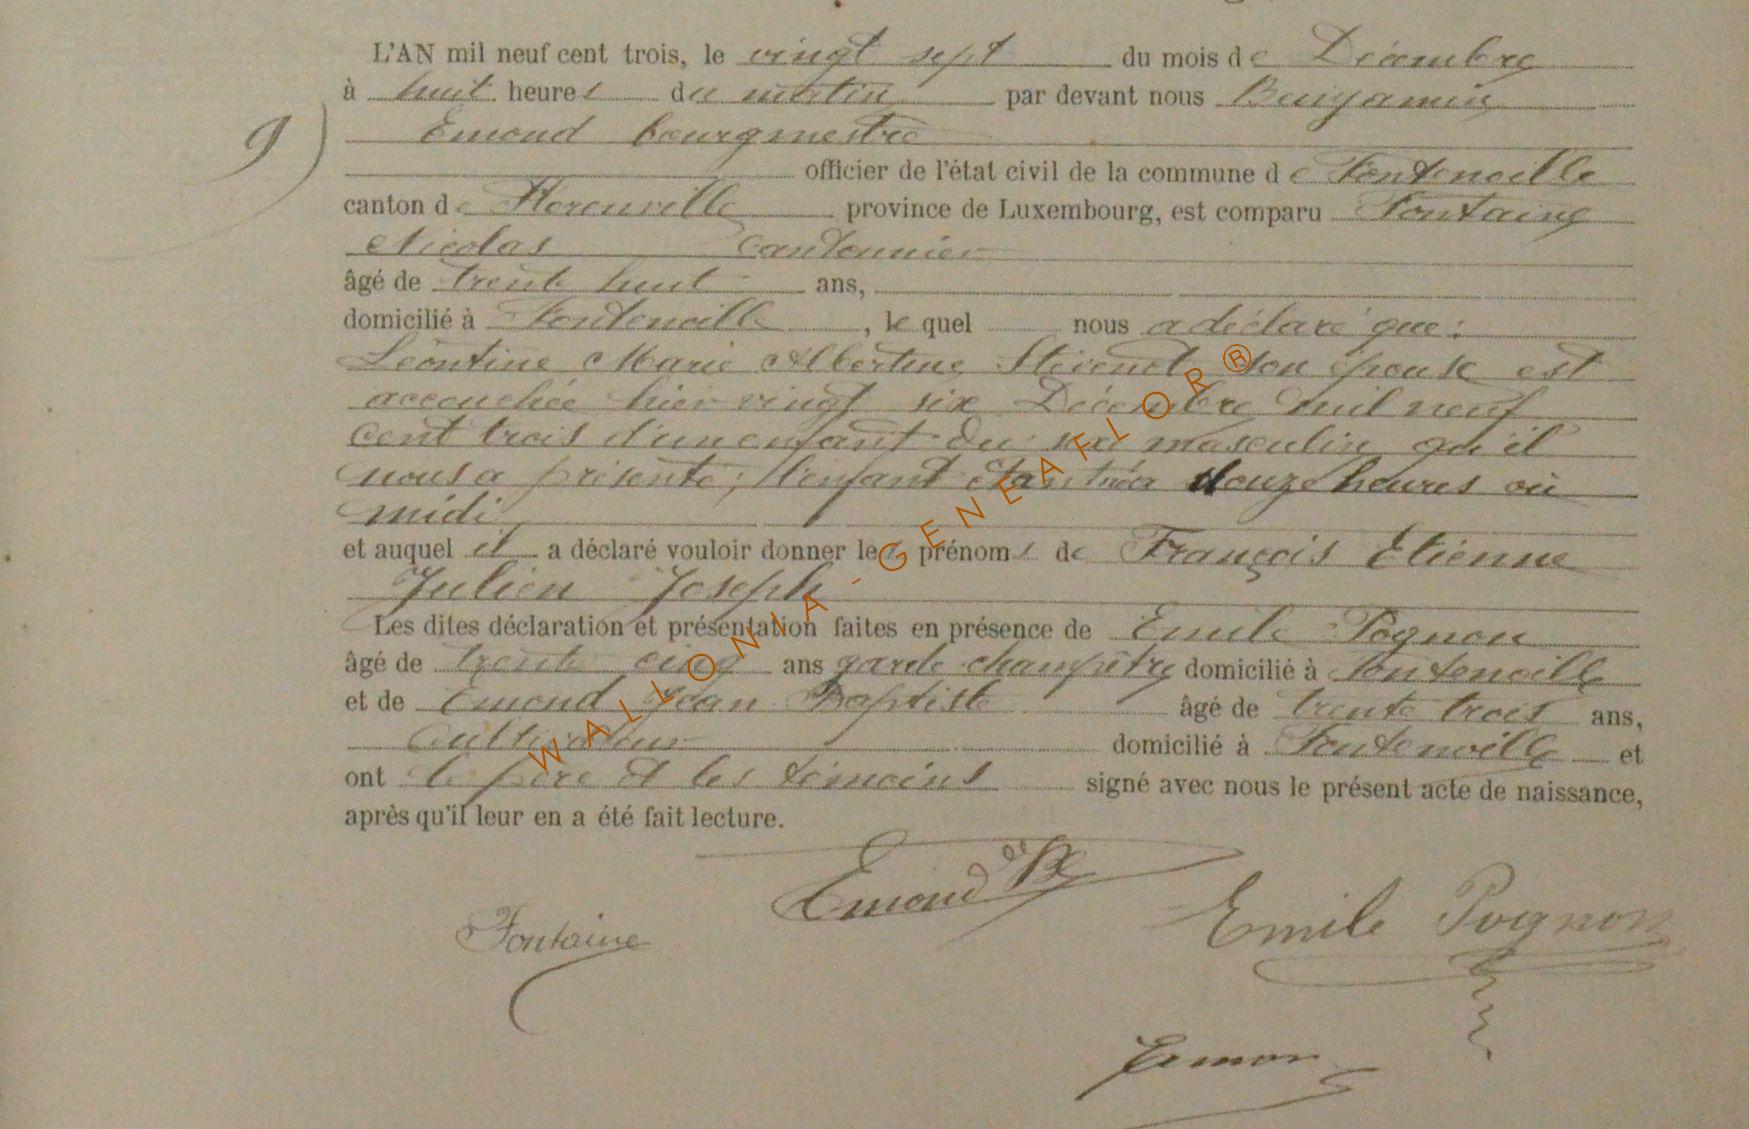 L'AN mil neuf cent trois, le vingt sept du mois de Décembre
à huit heures du matin par devant nous Benjamin
9) Emond bourgmestre
officier de l'état civil de la commune de Fontenoille
canton de Florenville province de Luxembourg, est comparu Fontaine
Nicolas cantonnier
âgé de trente huit ans,
domicilié à Fontenoille, lequel nous a déclaré que :
Léontine Marie Albertine Stévenot son épouse est
accouchée hier vingt six Décembre mil neuf
cent trois d'un enfant du sexe masculin qu'il
nous a présenté ; l'enfant étant né à douze heures où
midi
et auquel il a déclaré vouloir donner les prénoms de François Etienne
Julien Joseph
Les dites déclaration et présentation faites en présence de Emile Pognon
âgé de trente cinq ans garde champêtre domicilié à Fontenoille
et de Emond Jean Baptiste âgé de trente trois ans,
Cultivateur domicilié à Fontenoille et
ont le père et les témoins signé avec nous le présent acte de naissance,
après qu'il leur en a été fait lecture.
Emond
Fontaine
Emile Pognon
Emon
WALLONIA - GENEAFLOR®